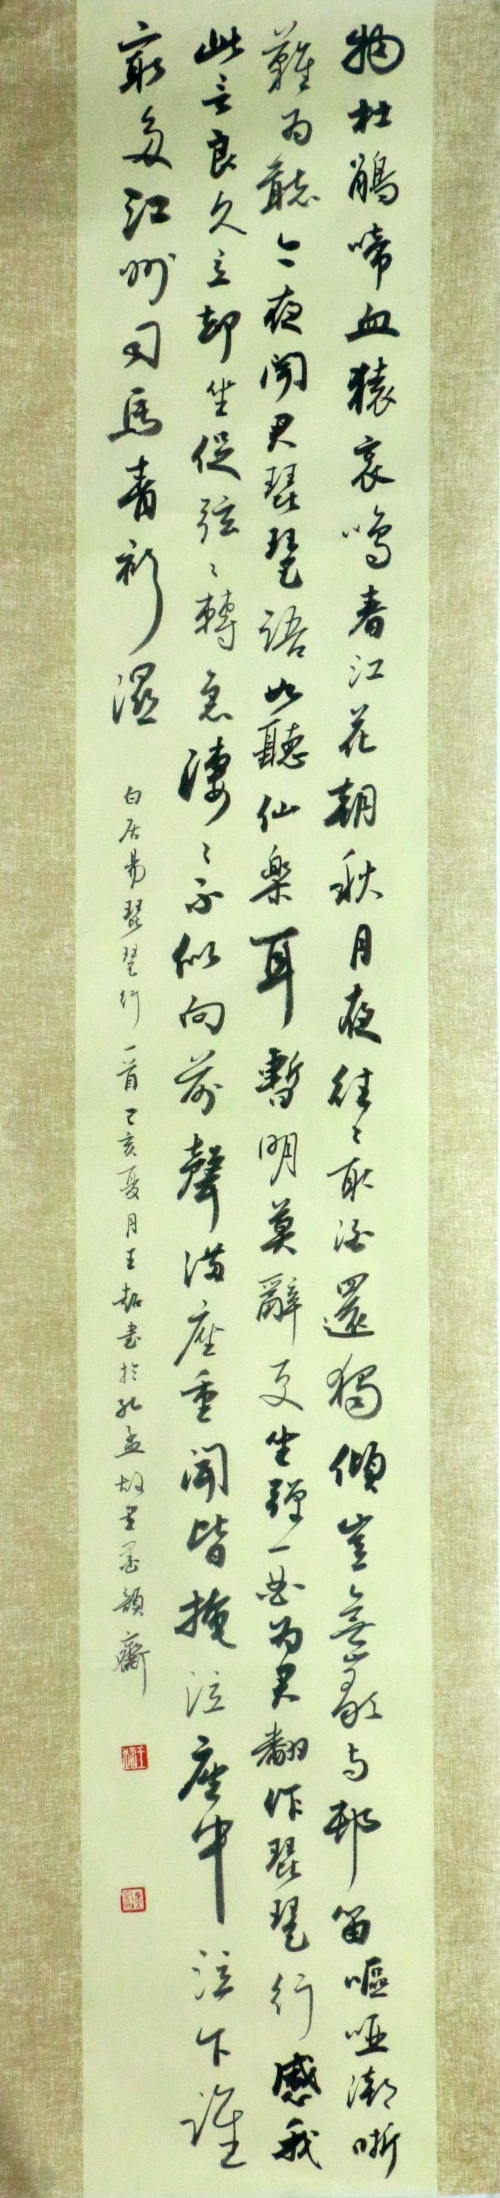 物杜鵑啼血猿哀鳴春江花朝秋月夜往〻取酒還獨傾豈無山歌与邨笛嘔啞潮哳
難为聽今夜聞君琵琶語如聽仙樂耳暫明莫辭更坐彈一曲为君翻作琵琶行感我
此言良久立却坐促弦〻轉急淒〻不似向前聲滿座重聞皆掩泣座中泣下誰
最多江州司馬青衫濕
白居易琵琶行一首己亥夏月王書於孔孟故里墨韻齋